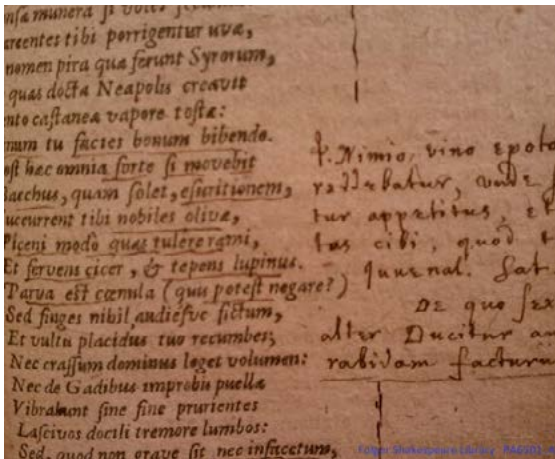 munera si voles
arcentes tibi porrigentur uvæ,
nomen pira quæ ferunt Syrorum,
quas docta Neapolis creavit
nto castaneæ vapore tostæ:
num tu facies bonum bibendo.
ost hæc omnia forte si movebit
Bacchus, quam solet, esuritionem,
ucurrent tibi nobiles olivæ,
Piceni modò quas tulere rami,
Et fervens cicer, & tepens lupinus.
Parva est cœnula (quis potest negare?)
Sed finges nihil, audiesve fictum,
Et vultu placidus tuo recumbes;
Nec crassum dominus leget volumen:
Nec de Gadibus improbis puellæ
Vibrabunt sine fine prurientes
Lascivos docili tremore lumbos:
Sed, quod non grave sit nec infacetum,
Nimio, vino epoto
tur appetitus, et
tas cibi, quod
Juuenal. Sat.
De quo
alter Ducitur
rabidam facturu
Folger Shakespeare Library